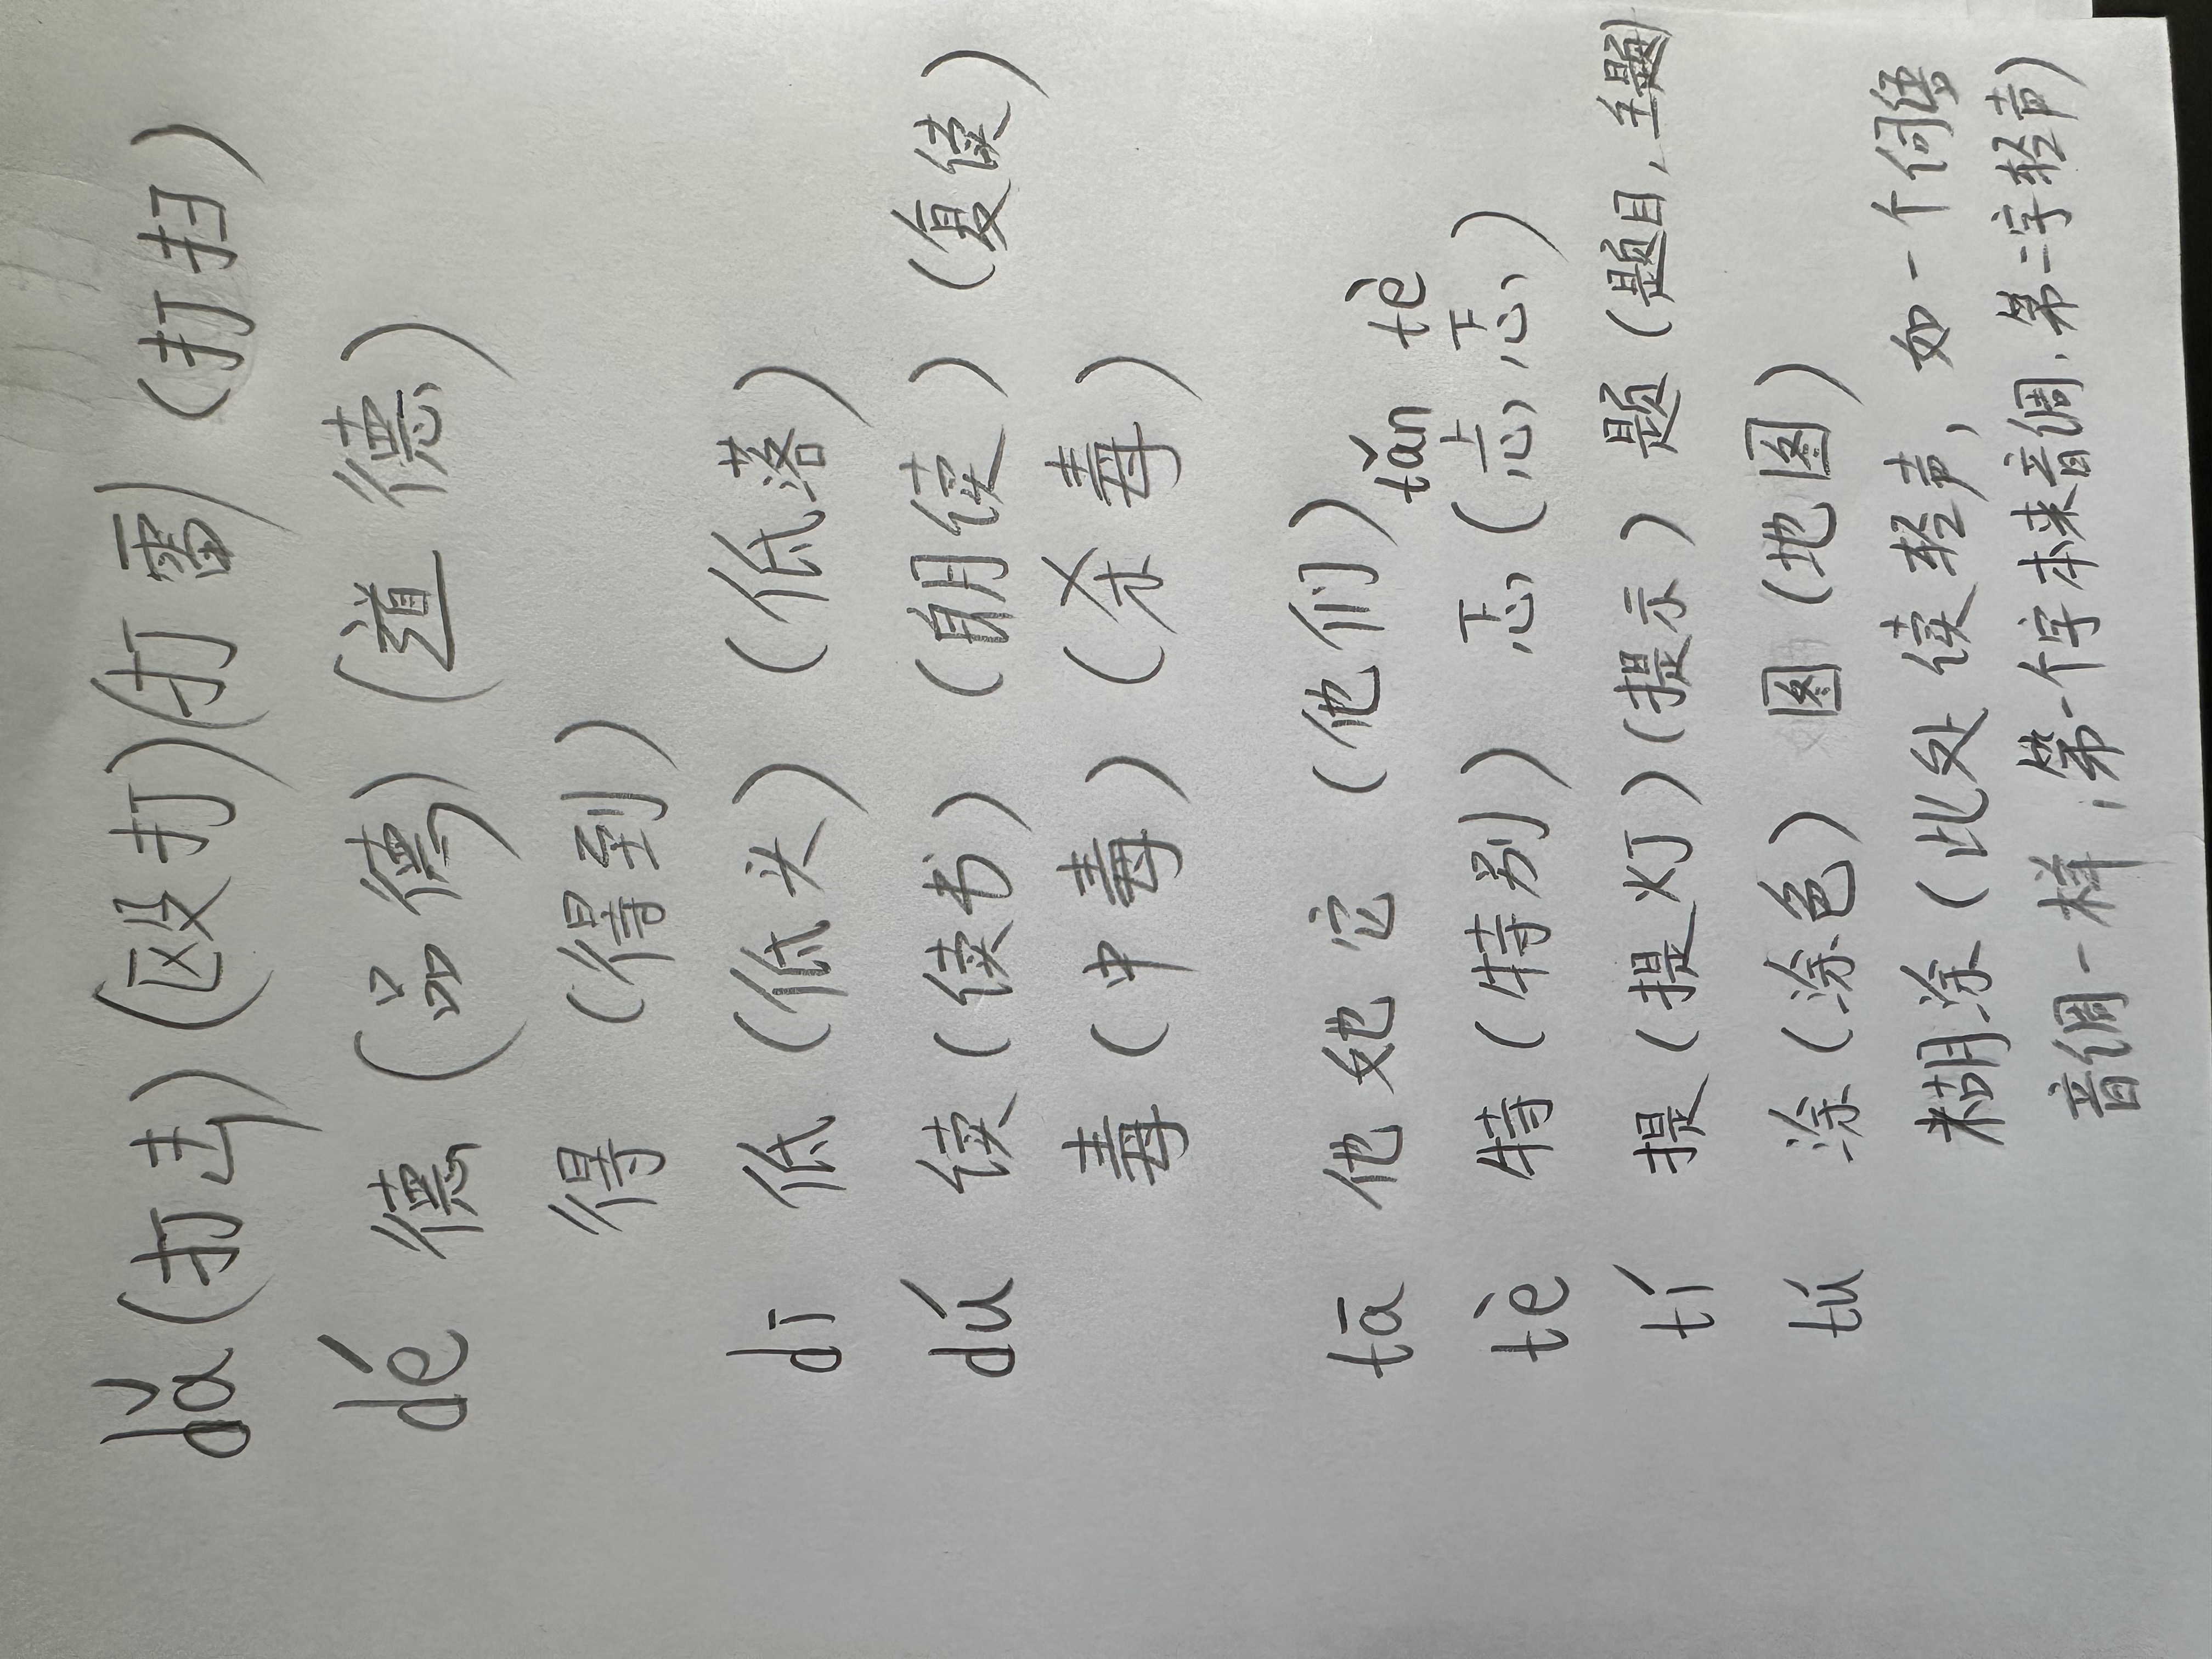 dǎ (打击) (殴打) (打雷) (打扫)
dé 德 (品德) (道德)
得 (得到)
dī 低 (低头) (低落)
dú 读 (读书) (朗读) (复读)
毒 (中毒) (杀毒)
tā 他 她 它 (他们)
tǎn tè
tè 特 (特别) 忑 (忐忑)
tí 提 (提灯) (提示) 题 (题目,主题)
tú 涂 (涂色) 图 (地图)
糊涂 (此处读轻声, 如一个词语
音调一样,第一个字本来音调,第二字轻声)